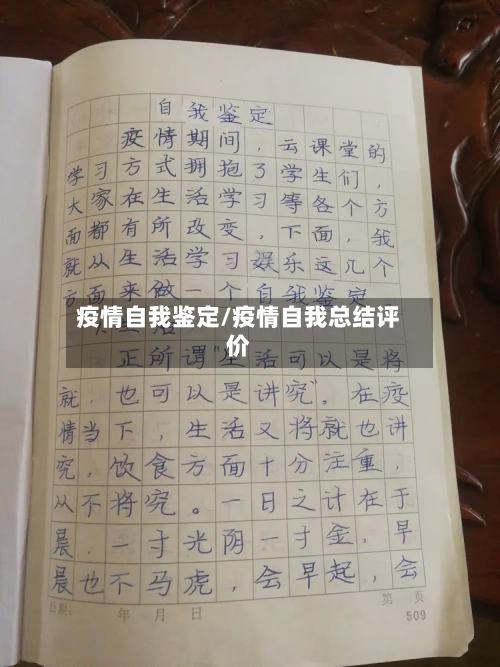 自我鉴定
疫情期间，云课堂的
学习方式拥抱了学生们，
大家在生活学习等各个方
面都有所改变，下面，我
就从生活学习娱乐这几个
方面来做一个自我鉴定
疫情自我鉴定/疫情自我总结评
价
正所谓"生活可以是将
就，也可以是讲究"。在疫
情当下，生活又将就也讲
究，饮食方面十分注重，
从不将究。一日之计在于
晨，一寸光阴一寸金，早
晨也不马虎，会早起，会
日期： 年 月 日 第 页
509